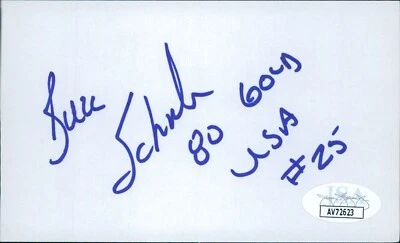 Buzz
Schneider
80 GOLD
USA
#25
JSA
AV72623